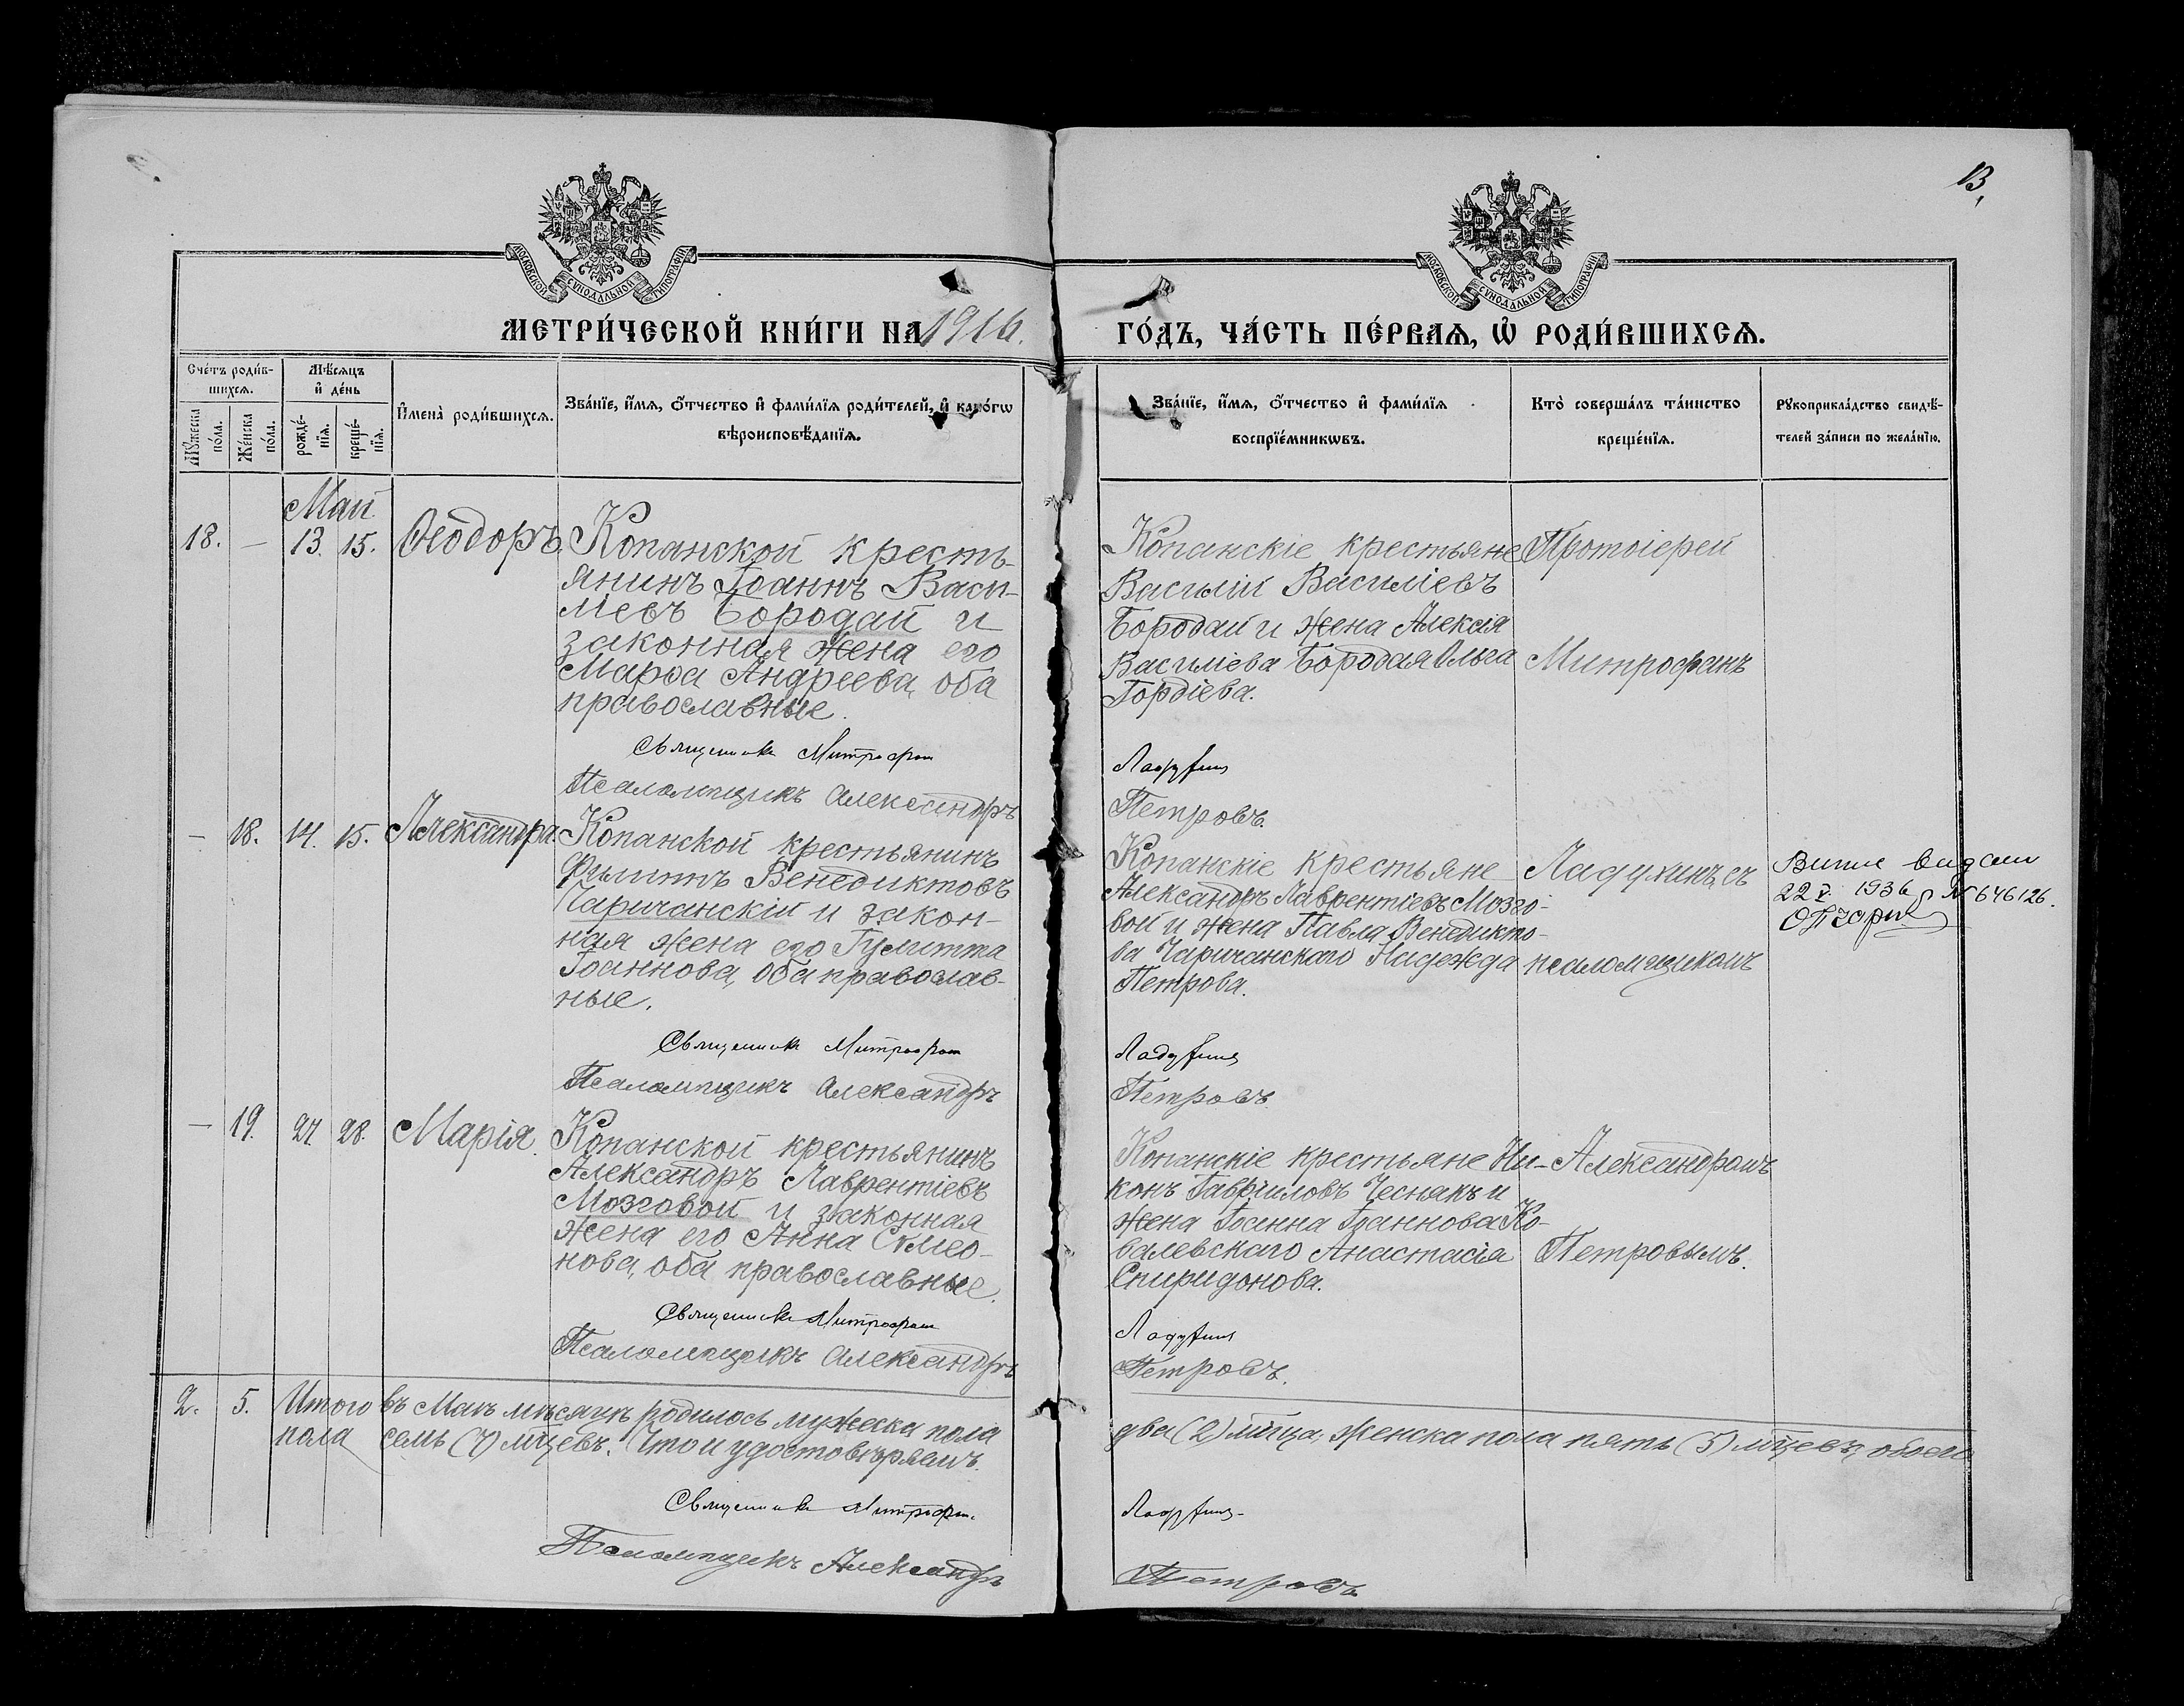 13.
МОСКОВСКОЙ СѴНОДАЛЬНОЙ ТИПОГРАФІИ
МОСКОВСКОЙ СѴНОДАЛЬНОЙ ТИПОГРАФІИ
МЕТРИ́ЧЕСКОЙ КНИ́ГИ НА 1916. ГО́ДЪ, ЧА́СТЬ ПЕ́РВАѦ, Ѡ҆ РОДИ́ВШИХСѦ.
Сче́тъ роди́в-
шихсѧ.
Мꙋ́жеска по́ла.
Же́нска по́ла.
Мѣ́сѧцъ
и҆ де́нь
рожде́-нїѧ.
креще́-нїѧ.
И҆мена̀ роди́вшихсѧ.
Зва́нїе, и҆́мѧ, ѻ҆́тчество и҆ фами́лїѧ роди́телей, и҆ како́гѡ
вѣроисповѣ́данїѧ.
Зва́нїе, и҆́мѧ, ѻ҆́тчество и҆ фами́лїѧ
воспрїе́мникѡвъ.
Кто̀ соверша́лъ та́инство
креще́нїѧ.
Рꙋкоприкла́дство свидѣ́-
телей за́писи по жела́нїю.
Май
18. — 13. 15. Ѳеодоръ
Копанской кресть-
янинъ Іоаннъ Васи-
льевъ Бородай и
законная жена его
Марѳа Андреева, оба
православные.
Священникъ Митрофанъ
Псаломщикъ Александръ
Копанскіе крестьяне
Василій Василіевъ
Бородай и жена Алексія
Василіева Бородая Ольга
Гордіева.
Ладухинъ
Петровъ.
Протоіерей
Митрофанъ
— 18. 14. 15. Александра.
Копанской крестьянинъ
Филиппъ Венедиктовъ
Чаричанскій и закон-
ная жена его Іулитта
Іоаннова, оба православ-
ные.
Священникъ Митрофанъ
Псаломщикъ Александръ
Копанскіе крестьяне
Александръ Лаврентіевъ Мозго-
вой и жена Павла Венедикто-
ва Чаричанскаго Надежда
Петрова.
Ладухинъ
Петровъ
Ладухинъ, съ
псаломщикомъ
22 V 1936 № 646126.
— 19. 27. 28. Марія.
Копанской крестьянинъ
Александръ Лаврентіевъ
Мозговой и законная
жена его Анна Сѵмео-
нова, оба православные.
Священникъ Митрофанъ
Псаломщикъ Александръ
Копанскіе крестьяне Ни-
конъ Гавріиловъ Чеснякъ и
жена Іоанна Іоаннова Ко-
валевскаго Анастасія
Спиридонова.
Ладухинъ
Петровъ.
Александромъ
Петровымъ.
2. 5. Итого въ Маѣ мѣсяцѣ родилось мужеска пола два (2) лица, женска пола пять (5) лицевъ, обоего
пола семь (7) лицевъ. Что и удостовѣряемъ.
Священникъ Митрофанъ Ладухинъ
Псаломщикъ Александръ Петровъ